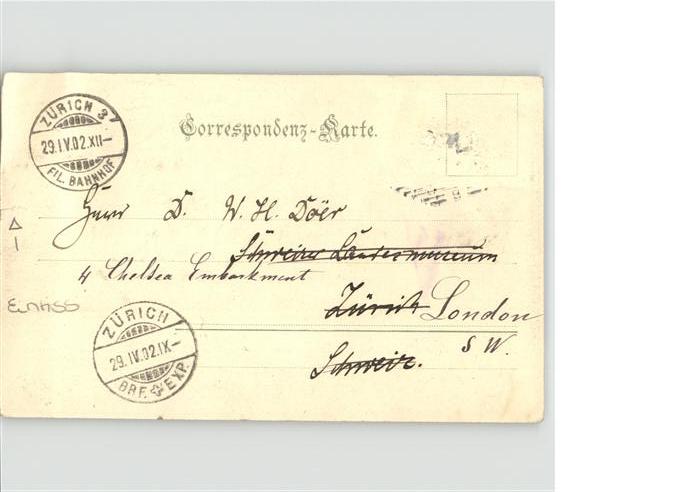 Correspondenz-Karte.
ZÜRICH 3
29.IV.02.XII—
FIL. BAHNHOF
Herrn D. W. H. Doer
Schweizer Landesmuseum
4 Chelsea Embankment
Zürich London
S W.
Schweiz.
ZÜRICH
29.IV.02.IX—
BRF. EXP.